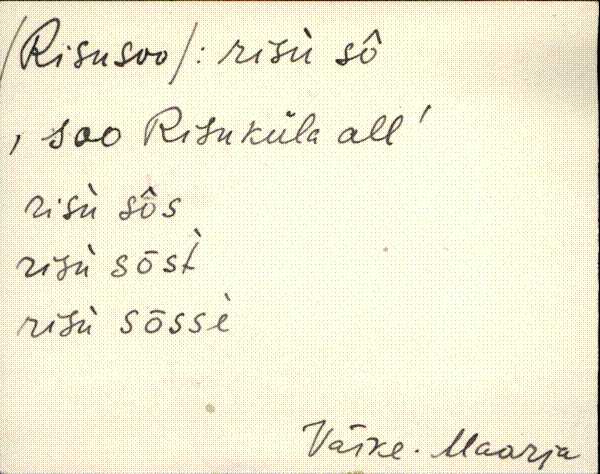 /Risusoo/: risù sô
, soo Risuküla all'
risù sôs
risù sōst̀
risù sōssè
Väike-Maarja